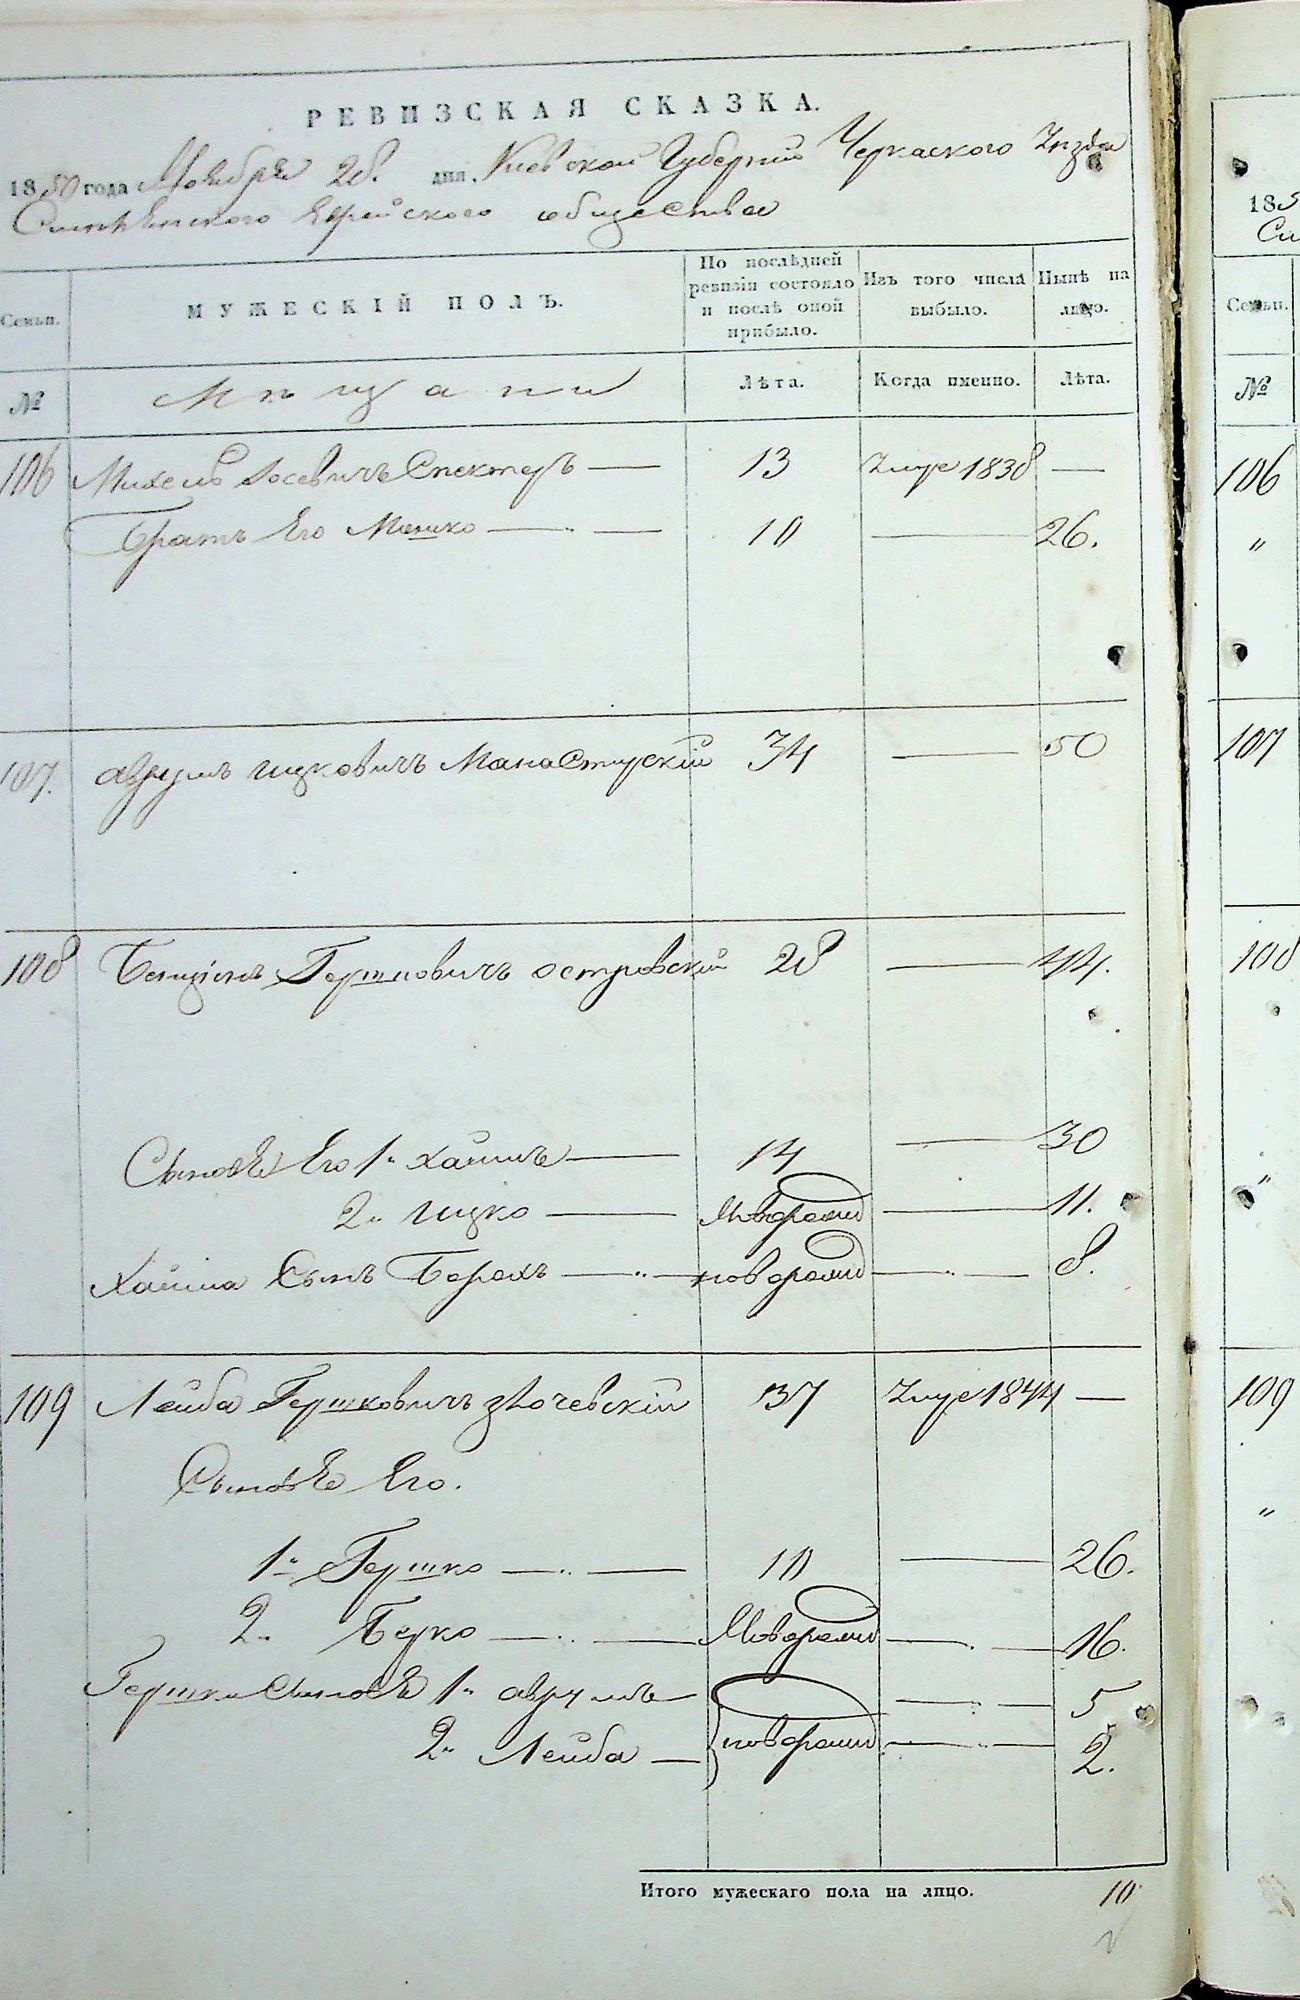 РЕВИЗСКАЯ СКАЗКА.
1850 года Ноября 28. дня. Киевской Губернии Черкаского Уезда
Смелянского Еврейского общества
Семьи.
МУЖЕСКІЙ ПОЛЪ.
По послѣдней ревизіи состояло и послѣ оной прибыло.
Изъ того числа выбыло.
Нынѣ на лицо.
№
Мѣщани
Лѣта.
Когда именно.
Лѣта.
106 Михель Іосевичъ Спекторъ — 13 Умре 1838 —
Братъ Его Мошко — „ — 10 — 26.
107. Аврумъ Ицковичъ Манастирскій 34 — 50
108 Бенціонъ Гершковичъ Островскій 28 — 44.
Сыновѣ Его 1й Хаимъ — 14 — 30
2й Ицко — Новорожд — 11.
Хаима Сынъ Борохъ — „ — новорожд — „ — 8.
109 Лейба Гершковичъ Злочевскій 37 Умре 1844 —
Сыновѣ Его.
1й Гершко — „ — 10 — 26.
2й Берко — „ — Новорожд — „ — 16.
Гершки Сыновѣ 1й Аврумъ — — „ — 5
2й Лейба — новорожд — „ — 2.
Итого мужескаго пола на лицо. 10
185
См
Семьи.
№
106
„
107
108
„
109
„